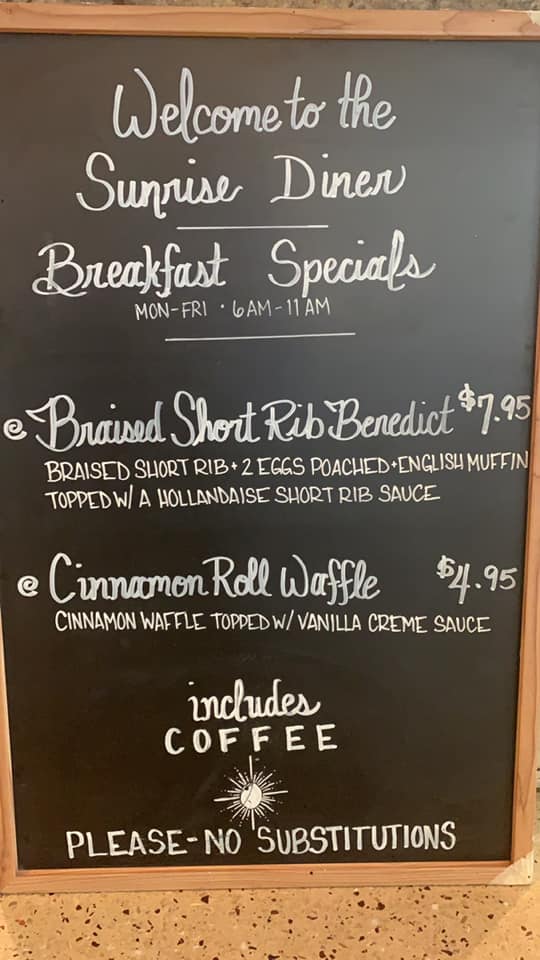 Welcome to the
Sunrise Diner
Breakfast Specials
MON-FRI • 6AM-11AM
Braised Short Rib Benedict $7.95
BRAISED SHORT RIB + 2 EGGS POACHED + ENGLISH MUFFIN
TOPPED W/ A HOLLANDAISE SHORT RIB SAUCE
Cinnamon Roll Waffle $4.95
CINNAMON WAFFLE TOPPED W/ VANILLA CREME SAUCE
includes
COFFEE
PLEASE-NO SUBSTITUTIONS